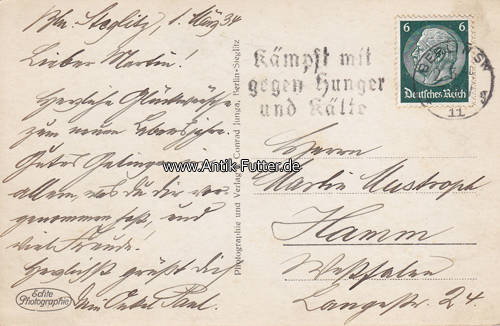 Bln. Steglitz, 1. März 34
Lieber Martin!
Herzliche Glückwünsche
zum neuen Lebensjahre.
Gutes Gelingen in
allem, was du dir vor-
genommen hast, und
viel Freude!
Herzlichst grüßt dich
Dein Onkel Paul.
Echte
Photographie
Photographie und Verlag Conrad Junga, Berlin-Steglitz
Kämpft mit
gegen Hunger
und Kälte
6 6
Deutsches Reich
BERLIN
11
www.Antik-Futter.de
Herrn
Martin
Hamm
Westfalen
Langestr. 24.